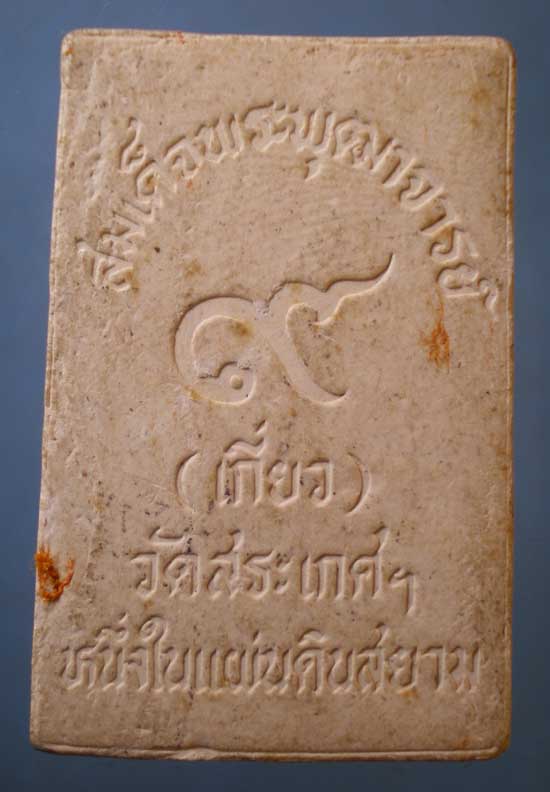 สมเด็จพระพุฒาจารย์
๙
(เกี่ยว)
วัดสระเกศฯ
หนึ่งในแผ่นดินสยาม